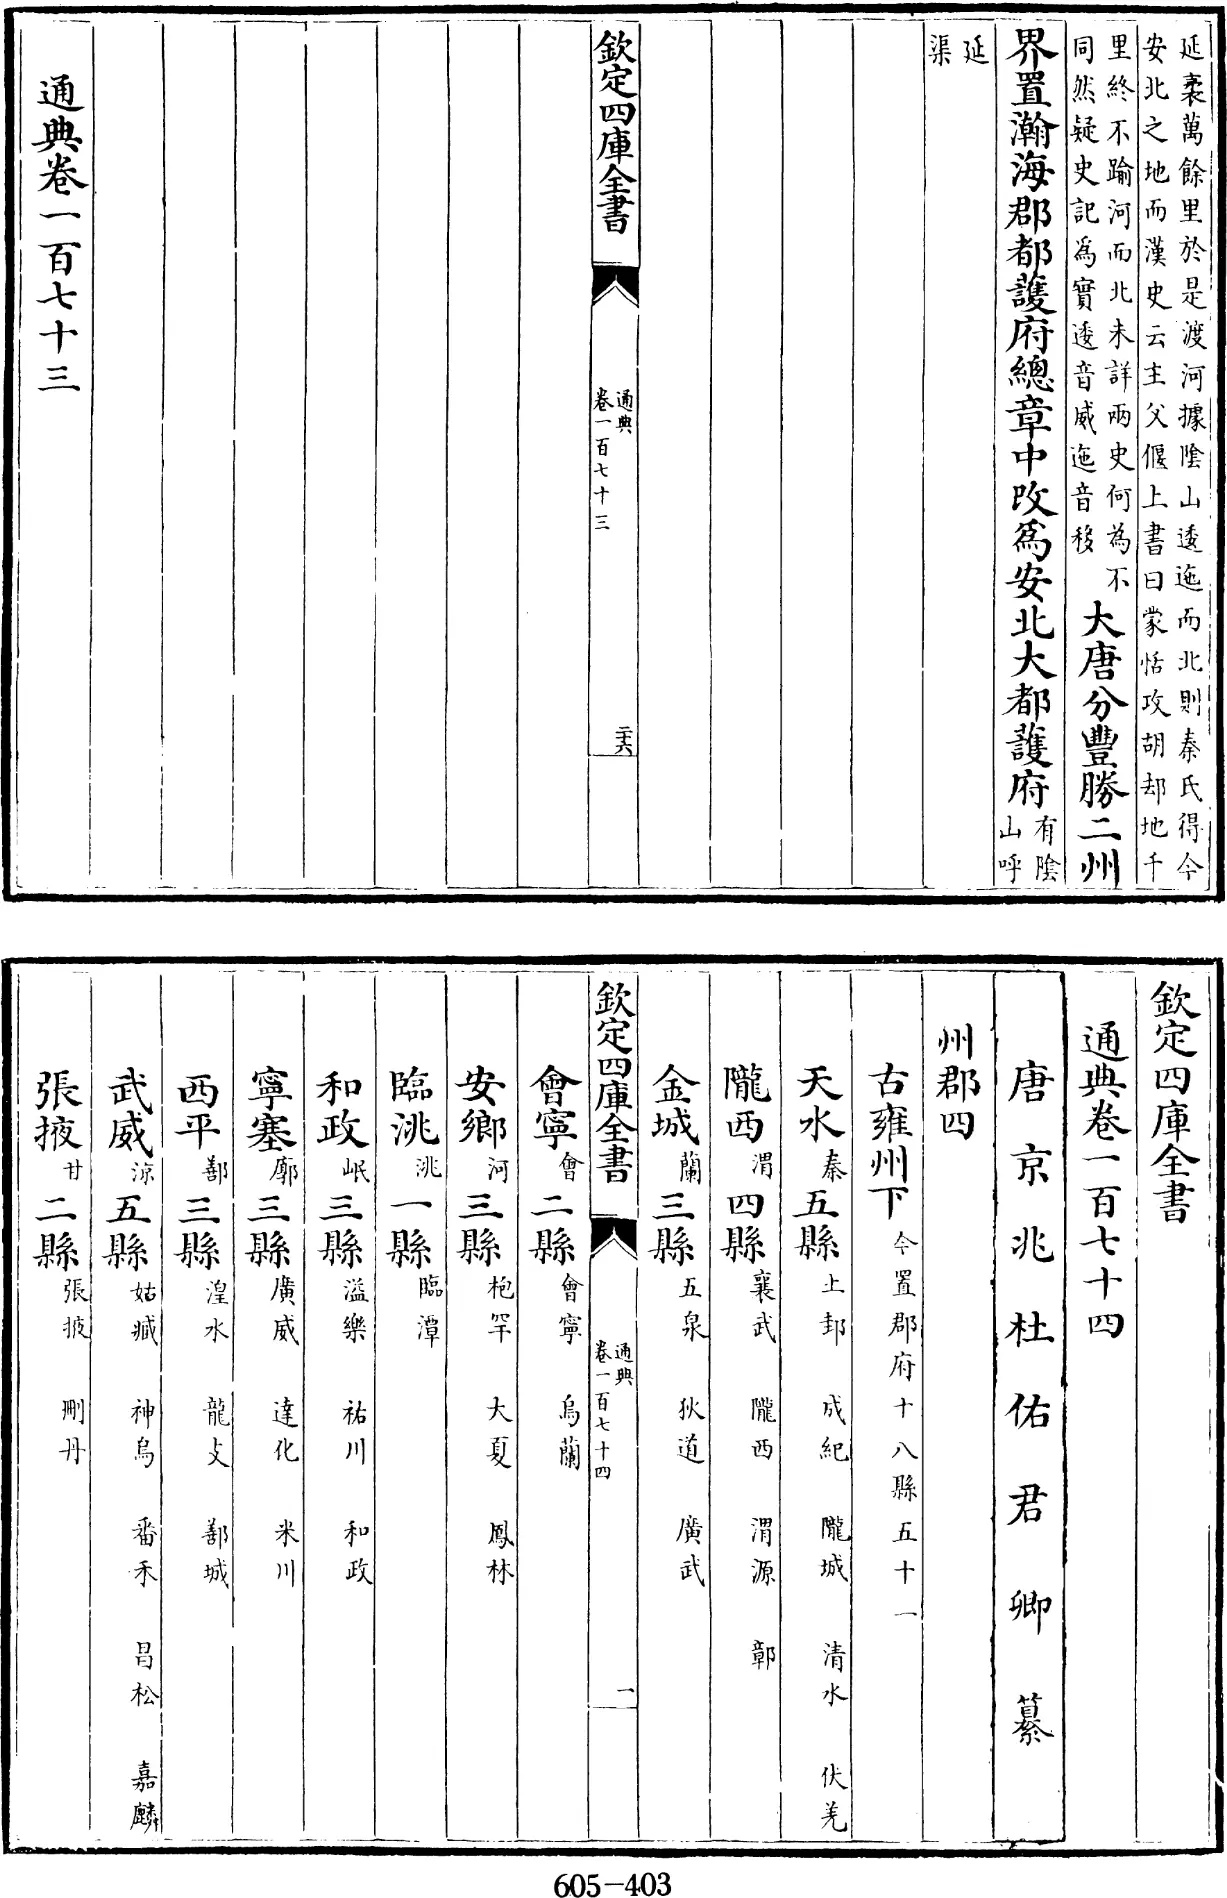 延袤萬餘里於是渡河據陰山逶迤而北則秦氏得今
安北之地而漢史云主父偃上書曰蒙恬攻胡却地千
里終不踰河而北未詳兩史何為不
同然疑史記為實逶音威迤音移
大唐分豐勝二州
界置瀚海郡都護府總章中改為安北大都護府
有陰
山呼
延
渠
欽定四庫全書
通典
卷一百七十三
二十六
通典卷一百七十三
欽定四庫全書
通典卷一百七十四
唐京兆杜佑君卿纂
州郡四
古雍州下 今置郡府十八縣五十一
天水 秦 五縣 上邽 成紀 隴城 清水 伏羌
隴西 渭 四縣 襄武 隴西 渭源 鄣
金城 蘭 三縣 五泉 狄道 廣武
欽定四庫全書
通典
卷一百七十四
一
會寧 會 二縣 會寧 烏蘭
安鄉 河 三縣 枹罕 大夏 鳳林
臨洮 洮 一縣 臨潭
和政 岷 三縣 溢樂 祐川 和政
寧塞 廓 三縣 廣威 達化 米川
西平 鄯 三縣 湟水 龍支 鄯城
武威 涼 五縣 姑臧 神烏 番禾 昌松 嘉麟
張掖 甘 二縣 張掖 刪丹
605-403